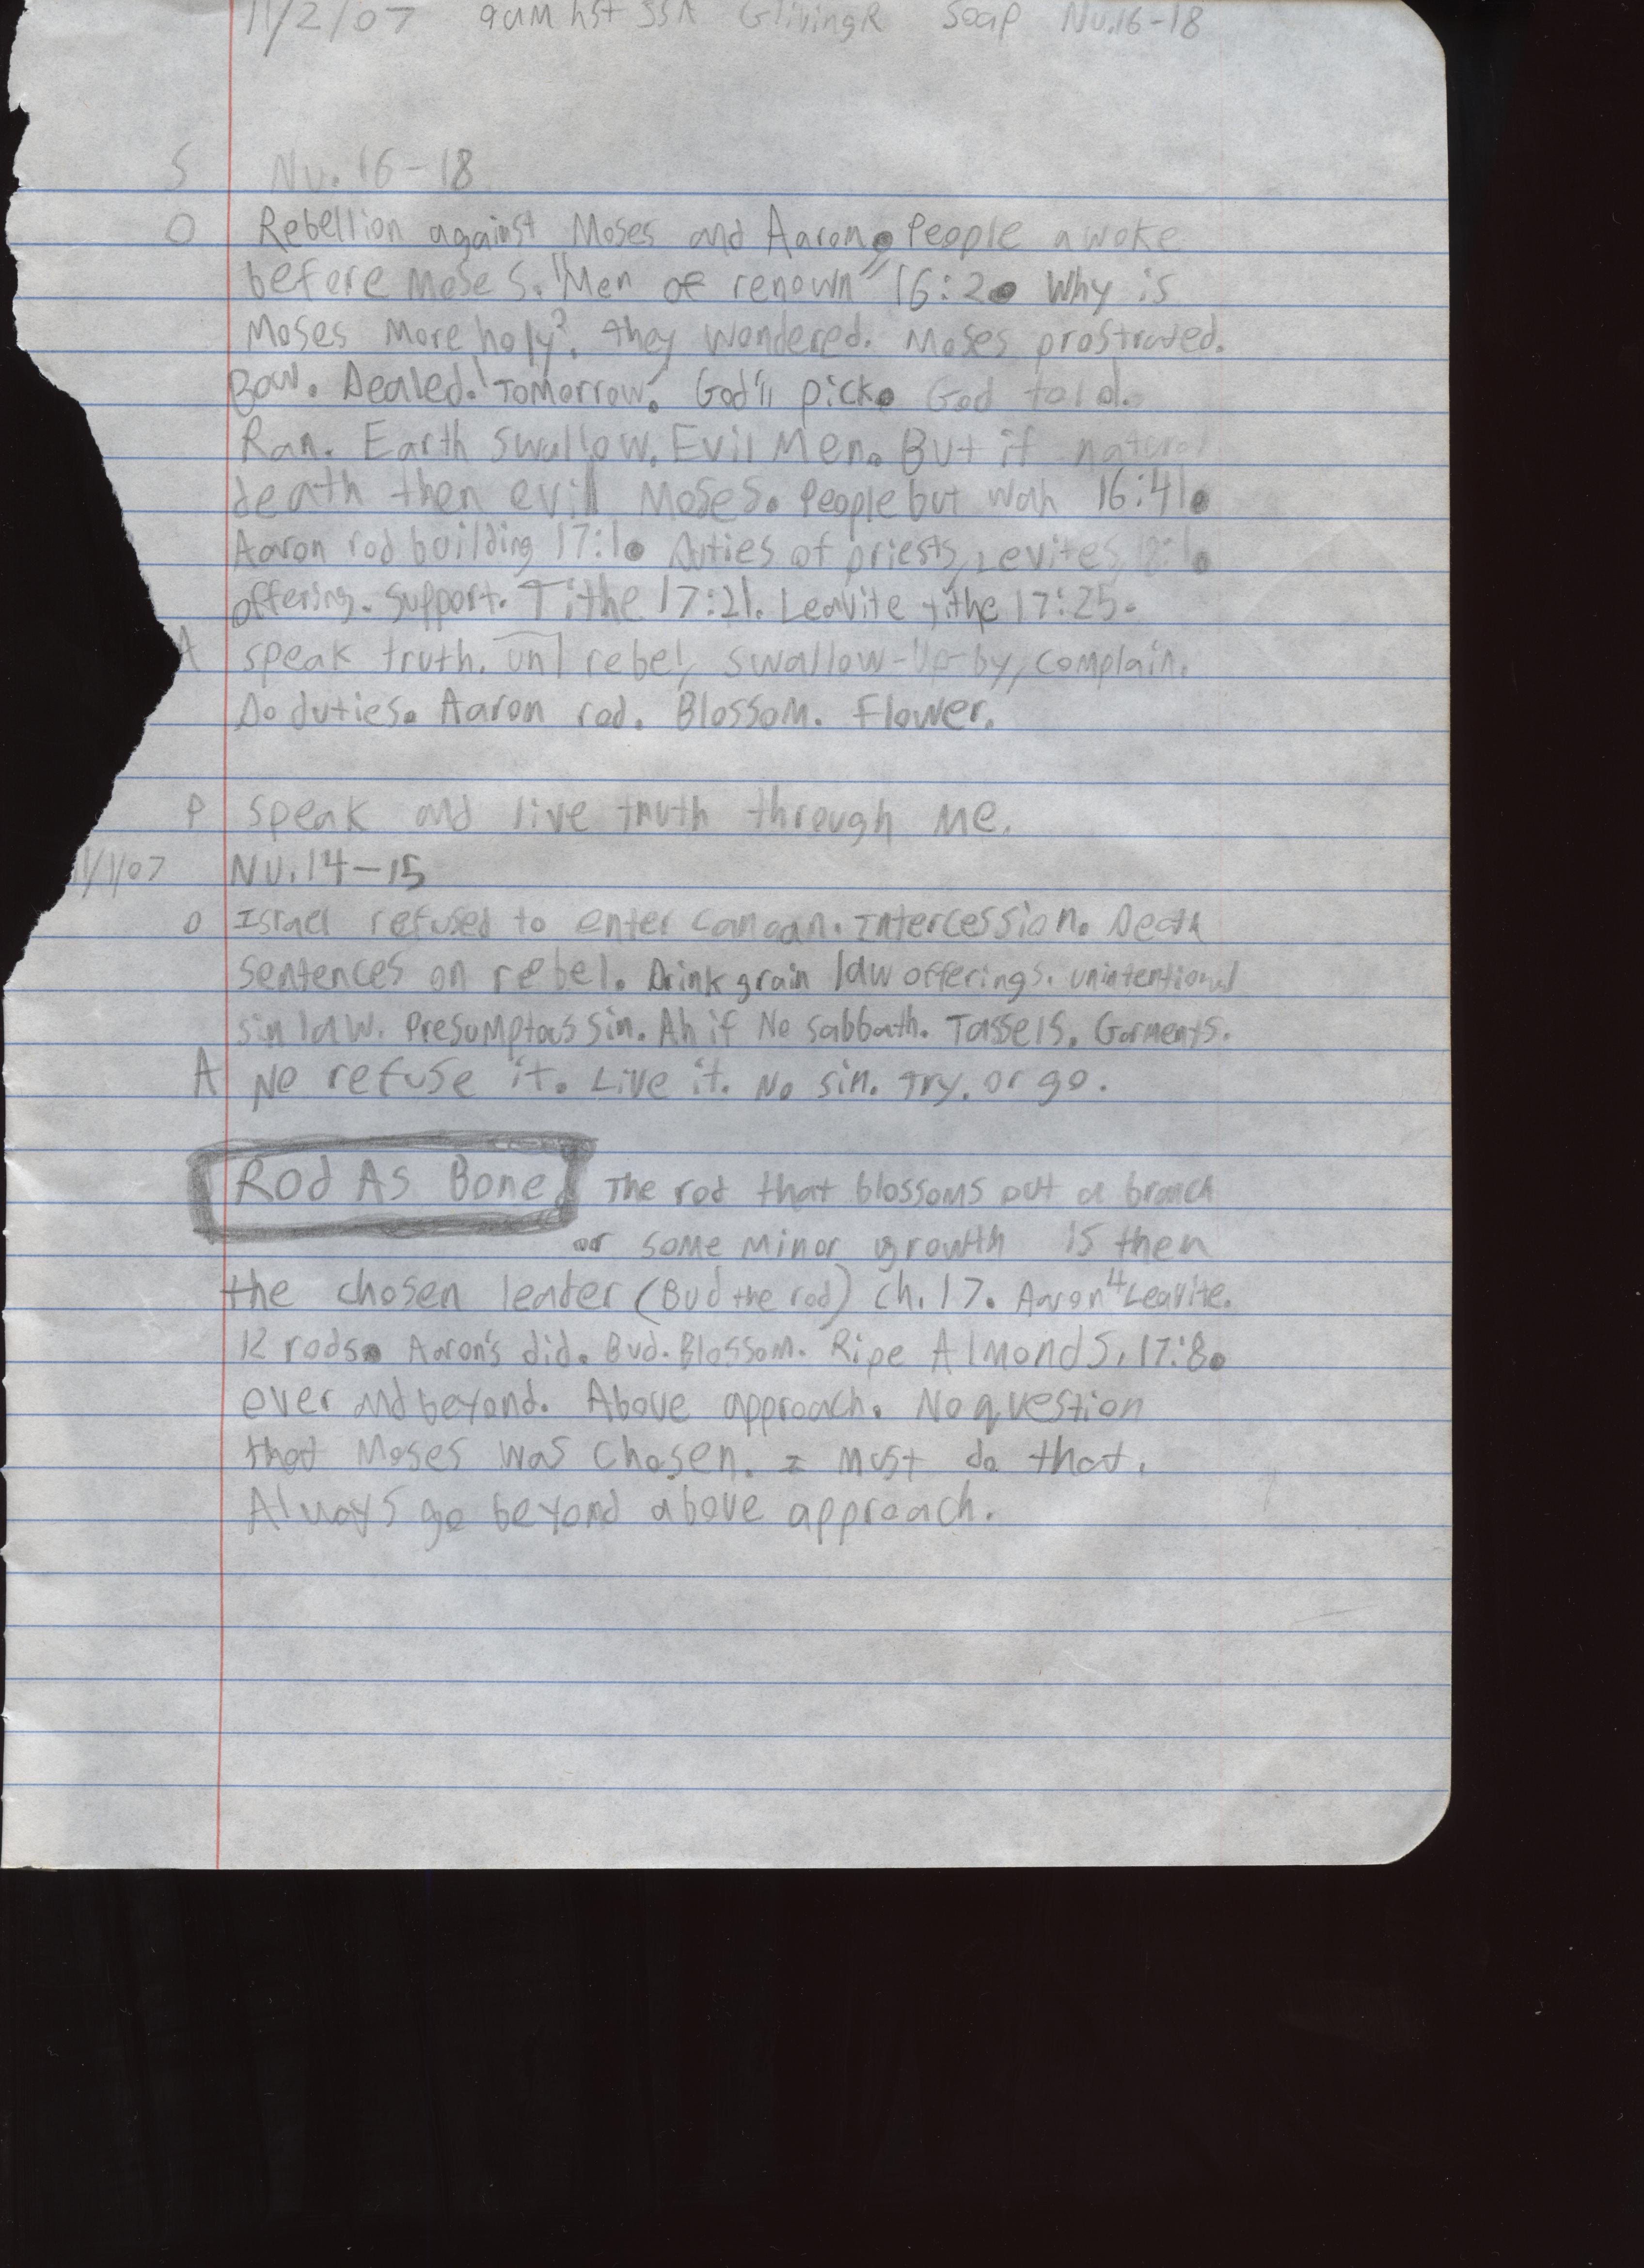 11/2/07 9am hst SSR GlivingR Soap Nu.16-18
S Nu. 16-18
O Rebellion against Moses and Aaron. People awoke
before Moses. "Men of renown" 16:2. Why is
Moses more holy?, they wondered. Moses prostrated.
Bow. Dealed. 'Tomorrow.' God'll pick. God told.
Ran. Earth swallow. Evil Men. But if natural
death then evil Moses. People but wah 16:41.
Aaron rod building 17:1. Duties of priests, Levites, 18:1.
offering. Support. Tithe 17:21. Leavite tithe 17:25.
A speak truth. rebel, swallow-up-by, complain.
Do duties. Aaron rod. Blossom. Flower.
P Speak and live truth through me.
11/1/07 Nu. 14-15
O Israel refused to enter Canaan. Intercession. Death
sentences on rebel. Drink grain law offerings. unintentional
sin law. Presumptous sin. Ah if No Sabbath. Tassels. Garments.
A No refuse it. Live it. No sin. Try. or go.
Rod As Bone. The rod that blossoms out a branch
or some minor growth is then
the chosen leader (Bud the rod) ch. 17. Aaron 4 Leavite.
12 rods. Aaron's did. Bud. Blossom. Ripe Almonds. 17:8.
over and beyond. Above approach. No question
that Moses was chosen. I must do that.
Always go beyond above approach.